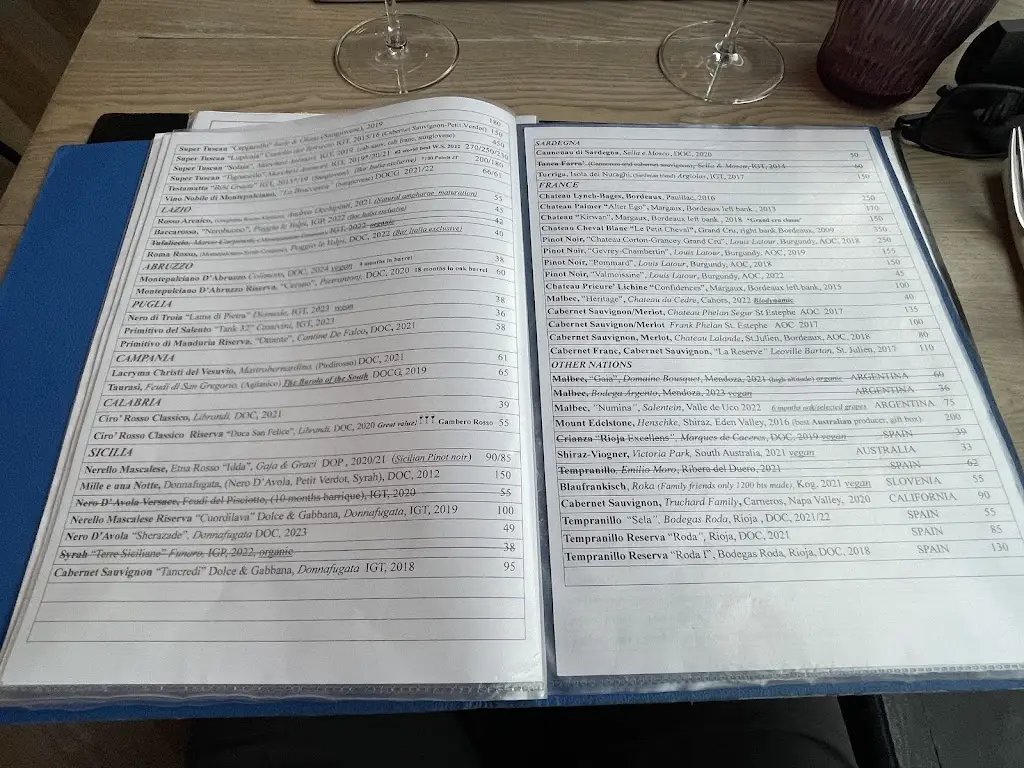 Super Tuscan (Sangiovese), 2019 180
Super Tuscan "Lupicaia" Castello del Terriccio IGT, 2015/16 (Cabernet Sauvignon-Petit Verdot) 150
Super Tuscan IGT, 450
Super Tuscan IGT, 270/250/230
Testamatta "Bibi Graetz" IGT, 2013/14 (Sangiovese) (Bar Italia exclusive) 200/180
Vino Nobile di Montepulciano, (Sangiovese) DOCG 2021/22 66/61
LAZIO
Rosso Arcaico, 2021 (Natural amphorae maturation) 55
Baccarossa, "Nerobuono", Poggio le Volpi, IGP, 2022 (Bar Italia exclusive) 45
IGT, 2022 organic 42
Roma Rosso, Poggio le Volpi, DOC, 2022 (Bar Italia exclusive) 40
ABRUZZO
Montepulciano D'Abruzzo DOC, 2024 vegan 8 months in barrel 38
Montepulciano D'Abruzzo Riserva, DOC, 2020 18 months in oak barrel 60
PUGLIA
Nero di Troia "Lama di Pietra" IGT, 2023 vegan 38
Primitivo del Salento "Tank 32" IGT, 2023 36
Primitivo di Manduria Riserva, Cantine De Falco, DOC, 2021 58
CAMPANIA
Lacryma Christi del Vesuvio, Mastroberardino (Piedirosso) DOC, 2021 61
Taurasi, Feudi di San Gregorio, (Aglianico) The Barolo of the South DOCG, 2019 65
CALABRIA
Ciro' Rosso Classico, Librandi, DOC, 2021 39
Ciro' Rosso Classico Riserva "Duca San Felice", Librandi, DOC, 2020 Great value! Gambero Rosso 55
SICILIA
Nerello Mascalese, Etna Rosso "Idda", Gaja & Graci DOP, 2020/21 (Sicilian Pinot noir) 90/85
Mille e una Notte, Donnafugata, (Nero D'Avola, Petit Verdot, Syrah), DOC, 2012 150
Nero D'Avola Versace, Feudi del Pisciotto, (10 months barrique), IGT, 2020 55
Nerello Mascalese Riserva "Cuordilava" Dolce & Gabbana, Donnafugata, IGT, 2019 100
Nero D'Avola "Sherazade", Donnafugata DOC, 2023 49
Syrah "Terre Siciliane" Funaro, IGP, 2022, organic 38
Cabernet Sauvignon "Tancredi" Dolce & Gabbana, Donnafugata IGT, 2018 95
SARDEGNA
Cannonau di Sardegna, Sella e Mosca, DOC, 2020 50
Tanca Farra', (Cannonau and cabernet sauvignon) Sella & Mosca, IGT, 2014 60
Turriga, Isola dei Nuraghi, (Sardinian blend) Argiolas, IGT, 2017 150
FRANCE
Chateau Lynch-Bages, Bordeaux, Pauillac, 2016 250
Chateau Palmer "Alter Ego", Margaux, Bordeaux left bank, 2013 170
Chateau "Kirwan", Margaux, Bordeaux left bank, 2018 "Grand cru classe" 150
Chateau Cheval Blanc "Le Petit Cheval", Grand Cru, right bank Bordeaux, 2009 350
Pinot Noir, "Chateau Corton-Grancey Grand Cru", Louis Latour, Burgundy, AOC, 2018 250
Pinot Noir, "Gevrey-Chambertin", Louis Latour, Burgundy, AOC, 2019 155
Pinot Noir, "Pommard", Louis Latour, Burgundy, AOC, 2018 150
Pinot Noir, "Valmoissine", Louis Latour, Burgundy, AOC, 2022 45
Chateau Prieure' Lichine "Confidences", Margaux, Bordeaux left bank, 2015 100
Malbec, "Heritage", Chateau du Cedre, Cahors, 2022 Biodynamic 40
Cabernet Sauvignon/Merlot, Chateau Phelan Segur St Estephe AOC 2017 135
Cabernet Sauvignon/Merlot Frank Phelan St. Estephe AOC 2017 100
Cabernet Sauvignon, Merlot, Chateau Lalande, St.Julien, Bordeaux, AOC, 2018 80
Cabernet Franc, Cabernet Sauvignon, "La Reserve" Leoville Barton, St. Julien, 2017 110
OTHER NATIONS
Malbec, "Gaia", Domaine Bousquet, Mendoza, 2021 (high altitude) organic ARGENTINA 60
Malbec, Bodega Argento, Mendoza, 2023 vegan ARGENTINA 36
Malbec, "Numina", Salentein, Valle de Uco 2022 6 months oak/selected grapes ARGENTINA 75
Mount Edelstone, Henschke, Shiraz, Eden Valley, 2016 (best Australian producer, gift box) 200
Crianza "Rioja Excellens", Marques de Caceres, DOC, 2019 vegan SPAIN 39
Shiraz-Viogner, Victoria Park, South Australia, 2021 vegan AUSTRALIA 33
Tempranillo, Emilio Moro, Ribera del Duero, 2021 SPAIN 62
Blaufrankisch, Roka (Family friends only 1200 bts made), Kog. 2021 vegan SLOVENIA 55
Cabernet Sauvignon, Truchard Family, Carneros, Napa Valley, 2020 CALIFORNIA 90
Tempranillo "Sela", Bodegas Roda, Rioja, DOC, 2021/22 SPAIN 55
Tempranillo Reserva "Roda", Rioja, DOC, 2021 SPAIN 85
Tempranillo Reserva "Roda I", Bodegas Roda, Rioja, DOC, 2018 SPAIN 130